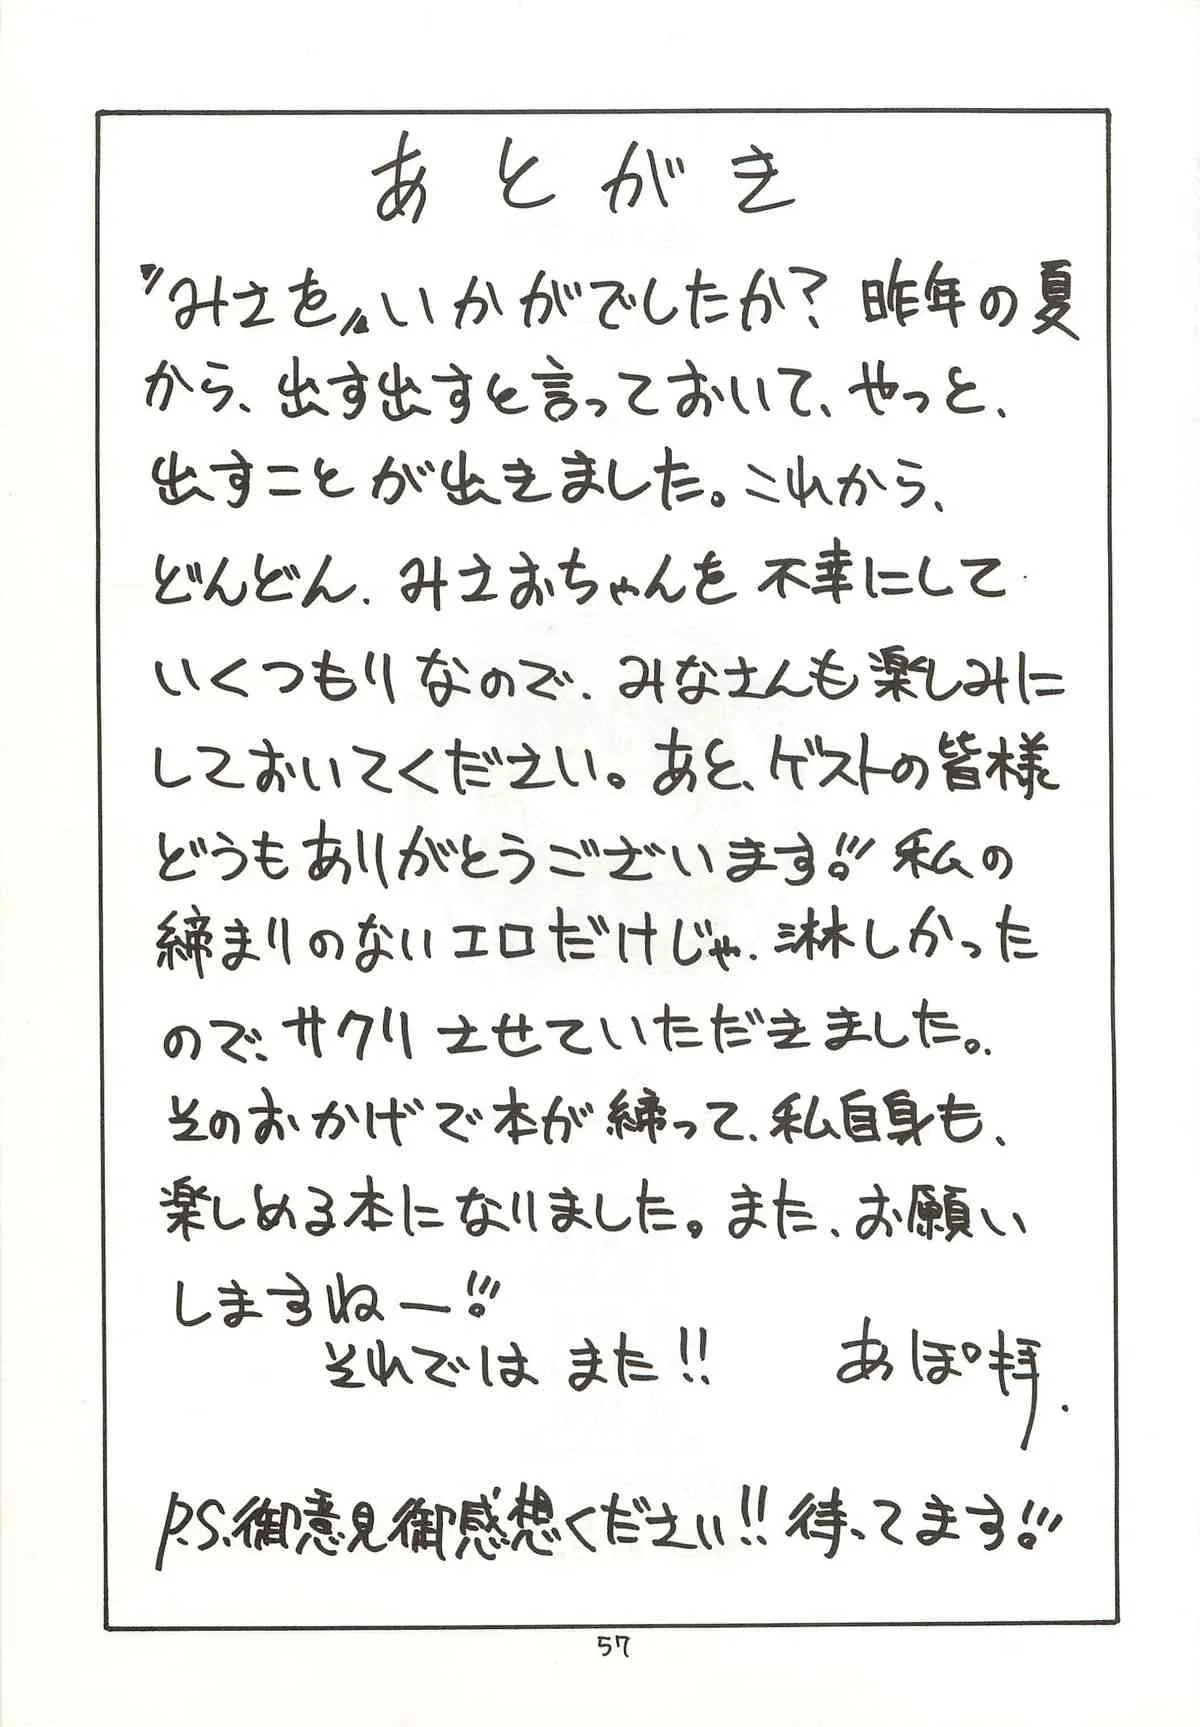 あとがき
〝みさを〟いかがでしたか？昨年の夏
から、出す出すと言っておいて、やっと、
出すことが出きました。これから、
どんどん、みさおちゃんを不幸にして
いくつもりなので、みなさんも楽しみに
しておいてください。あと、ゲストの皆様
どうもありがとうございます!!私の
締まりのないエロだけじゃ、淋しかった
ので、サクリさせていただきました。
そのおかげで本が締って、私自身も、
楽しめる本になりました。また、お願い
しますねー!!!
それではまた!!
あぽ拝.
P.S.御意見御感想ください!!待ってます!!!
57